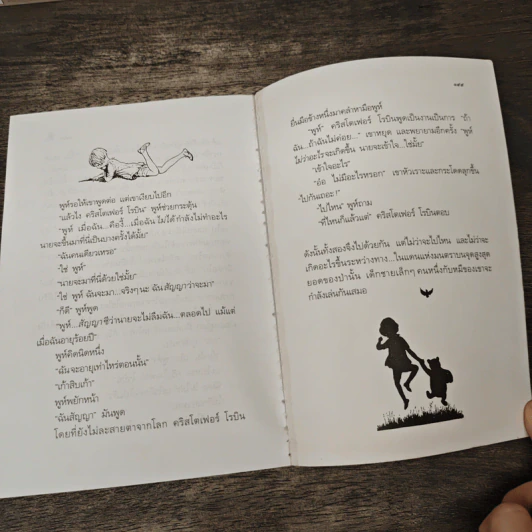 พูห์รอให้เขาพูดต่อ แต่เขาเงียบไปอีก
"แล้วไง คริสโตเฟอร์ โรบิน" พูห์ช่วยกระตุ้น
"พูห์ เมื่อฉัน...คืองี้...เมื่อฉันไม่ได้กำลังไม่ทำอะไร
นายจะขึ้นมาที่นี่เป็นบางครั้งได้มั้ย"
"ฉันคนเดียวเหรอ"
"ใช่ พูห์"
"นายจะมาที่นี่ด้วยใช่มั้ย"
"ใช่ พูห์ ฉันจะมา...จริงๆ นะ ฉันสัญญาว่าจะมา"
"ก็ดี" พูห์พูด
"พูห์...สัญญาซิว่านายจะไม่ลืมฉัน...ตลอดไป แม้แต่
เมื่อฉันอายุร้อยปี"
พูห์คิดนิดหนึ่ง
"ฉันจะอายุเท่าไหร่ตอนนั้น"
"เก้าสิบเก้า"
พูห์พยักหน้า
"ฉันสัญญา" มันพูด
โดยที่ยังไม่ละสายตาจากโลก คริสโตเฟอร์ โรบิน
ยื่นมือข้างหนึ่งมาคลำหามือพูห์
"พูห์" คริสโตเฟอร์ โรบินพูดเป็นงานเป็นการ "ถ้า
ฉัน...ถ้าฉันไม่ค่อย..." เขาหยุด และพยายามอีกครั้ง "พูห์
ไม่ว่าอะไรจะเกิดขึ้น นายจะเข้าใจ...ใช่มั้ย"
"เข้าใจอะไร"
"อ๋อ ไม่มีอะไรหรอก" เขาหัวเราะและกระโดดลุกขึ้น
"ไปกันเถอะ!"
"ไปไหน" พูห์ถาม
"ที่ไหนก็แล้วแต่" คริสโตเฟอร์ โรบินตอบ
ดังนั้นทั้งสองจึงไปด้วยกัน แต่ไม่ว่าจะไปไหน และไม่ว่าจะ
เกิดอะไรขึ้นระหว่างทาง...ในแดนแห่งมนตราบนจุดสูงสุด
ยอดของป่านั้น เด็กชายเล็กๆ คนหนึ่งกับหมีของเขาจะ
กำลังเล่นกันเสมอ